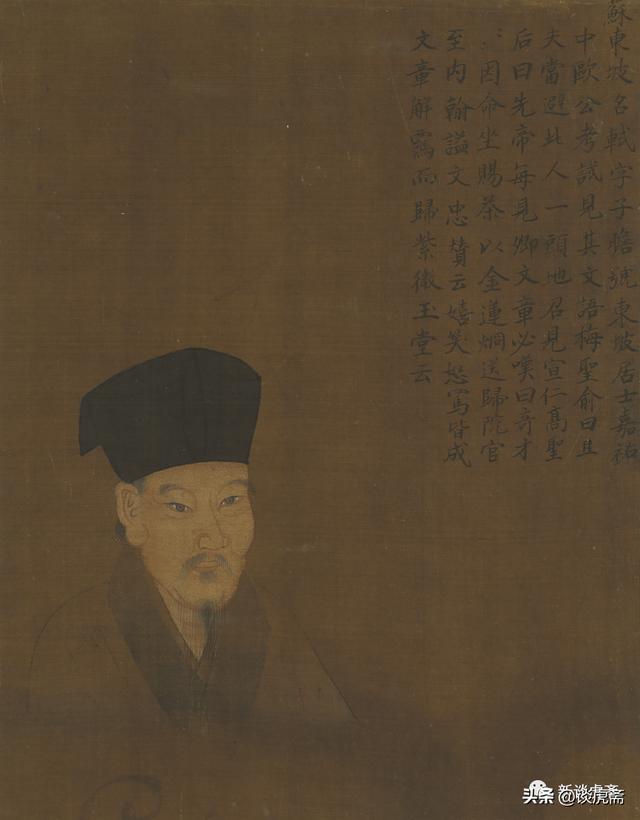 蘇東坡名軾字子瞻號東坡居士嘉祐
中歐公考試見其文語梅聖俞曰且
夫當避此人一頭地召見宣仁高聖
后曰先帝每見卿文章必嘆曰奇才
〻〻因命坐賜茶以金蓮燭送歸院官
至内翰謚文忠贊云嬉笑怒罵皆成
文章解而歸紫微玉堂云
新谈虎斋
头条 @谈虎斋